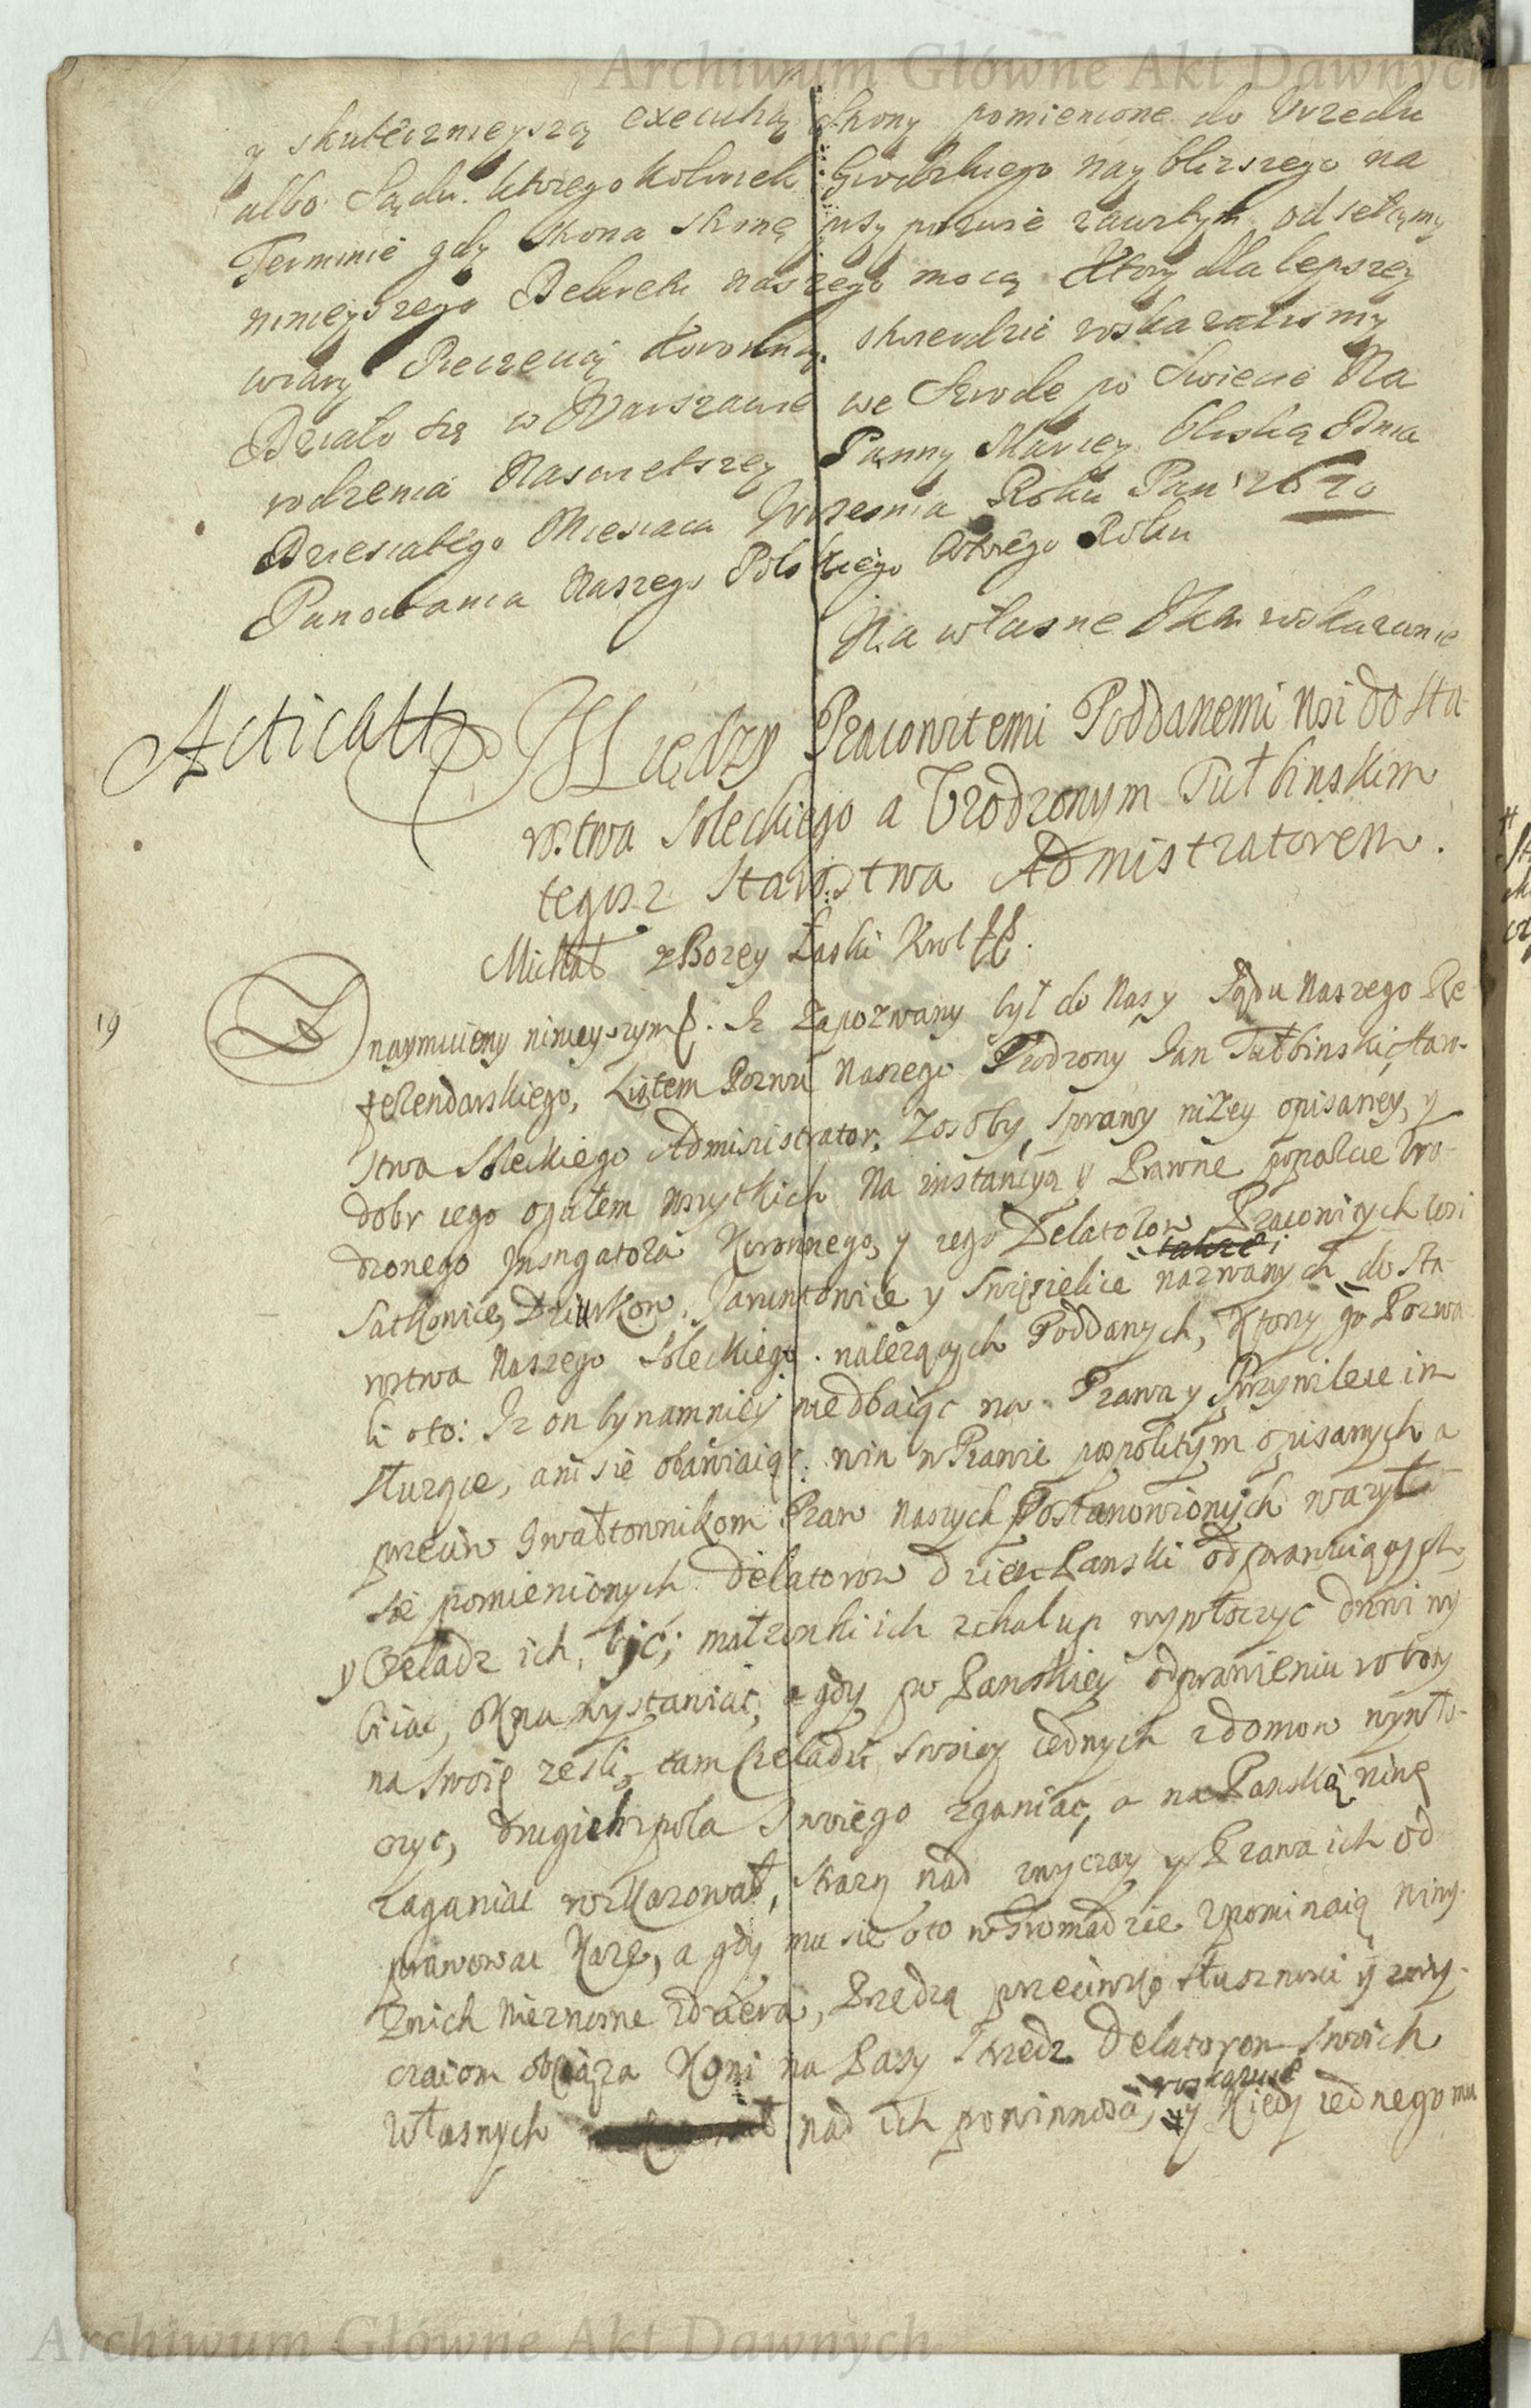 Archiwum Główne Akt Dawnych
y skutecznieyszą executią strony pomienione do Vrzedu
albo Sądu ktoregokolwiek Grodzkiego nayblizszego na
Terminie gdy strona stronę przy pozwie zawitym odsełamy
ninieyszego Dekretu naszego mocą Ktory dla lepszey
wiary Pieczecią Koronną stwierdzić roskazalismy
Działo się w Warszawie we Srode po Swiecie Na
rodzenia Naswietszey Panny Mariey bliską Dnia
Dziesiątego Miesiaca Wrzesnia Roku Pan 1670
Panowania Naszego Polskiego wtorego Roku
Na własne JKM roskazanie
Acticatt
Między Pracowitemi Poddanemi wsi do Sta-
rostwa Soleckiego a Vrodzonym Tułbinskim
tegosz Starostwa Admistratorem.
Michał z Bozey Łaski Krol
19
Oznaymuiemy ninieyszym. Iz zapozwany był do Nas y Sądu Naszego Re-
ferendarskiego, Listem Pozwu Naszego Vrodzony Jan Tułbinski, Staro-
stwa Soleckiego Administrator, z osoby, sprawy nizey opisaney, y
dobr iego ogułem wszytkich Na instantyą y Prawne poparcie Vro-
dzonego Instygatora Koronnego, y iego Delatorow Pracowitych wsi
Satkowice, Dziurkow, Jaruntowice y Swięsielice nazwanych do Sta-
rostwa Naszego Soleckiego nalezących Poddanych, Ktorzy go Pozwa-
li oto: Iz on bynamniey niedbaiąc na Prawa y Przywileie im
sluzące, ani się obawiaiąc win w Prawie pospolitym opisanych a
przeciw gwałtownikom Praw naszych Postanowionych wazył
się pomienionych Delatorow dzien Panski odprawuiących,
y Czeladz ich, bić; małzonki ich z chalup wywłoczyc drzwi wy
biiac, Okna wystawiac, a gdy po Panskiey odprawieniu roboty
na swoię zesli, tam Czeladzi swoiey iednych z domow wywło-
czyc, drugich z pola swoiego zganiac, a na Panską niwę
zaganiac wskazował, Strazy nad zwyczay y Prawa ich od
prawowac Kaze, a gdy mu sie oto w Gromadzie zpominaią winy
z nich nieznosne zdziera, Przedzą przeciwko słusznosci y zwy-
czaiom obciąza Koni na Pasy Trzedz Delatorom swoich
roskazuie
Własnych nad ich powinnosci, y Kiedy iednego mu
Archiwum Główne Akt Dawnych